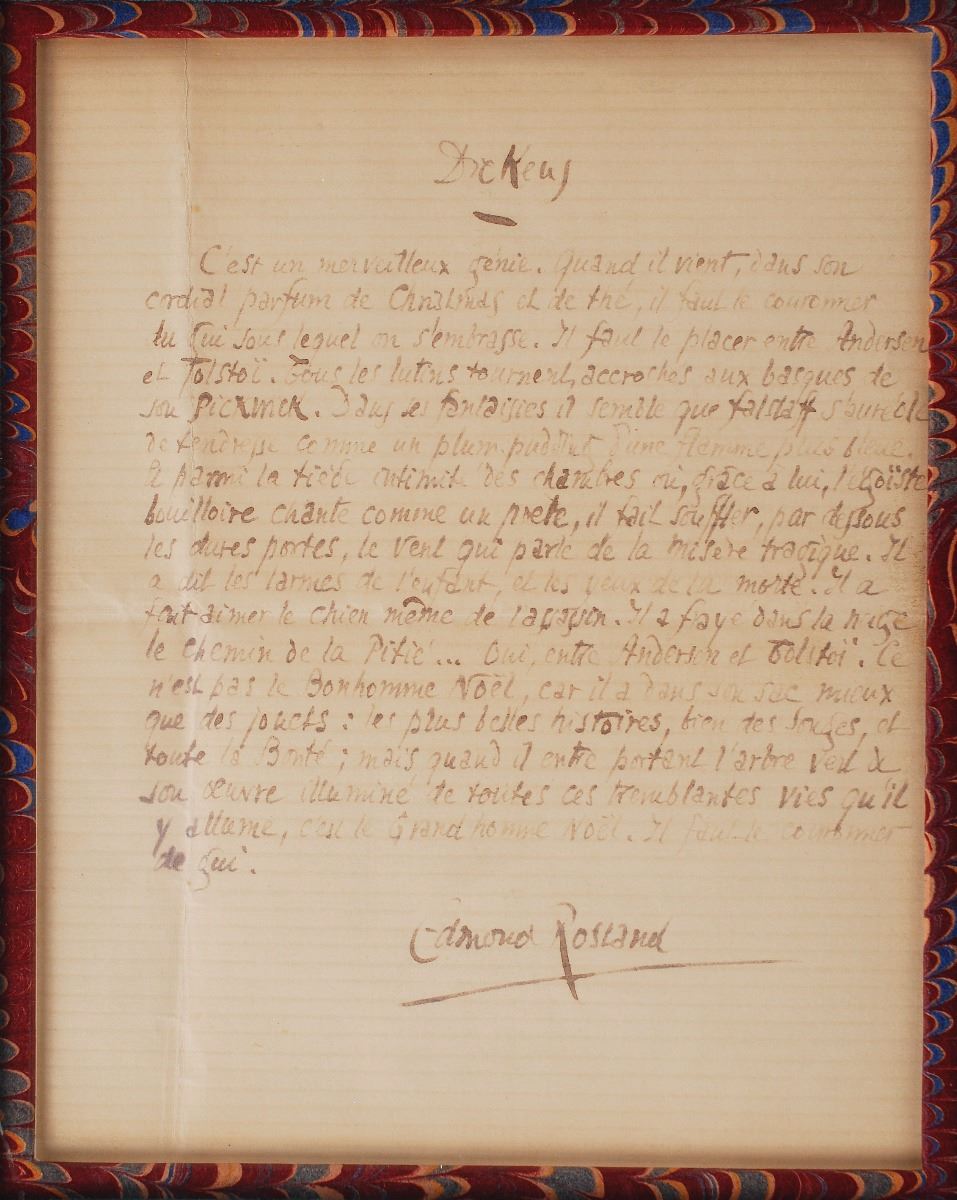 Dickens
C'est un merveilleux génie. Quand il vient, dans son
cordial parfum de Christmas et de thé, il faut le couronner
du gui sous lequel on s'embrasse. Il faut le placer entre Andersen
et Tolstoï. Tous les lutins tournent, accrochés aux basques de
son Pickwick. Dans ses fantaisies il semble que Falstaff s'auréole
de tendresse comme un plum-pudding d'une flamme plus bleue.
Et parmi la tiède intimité des chambres où, grâce à lui, l'égoïste
bouilloire chante comme un poète, il fait souffler, par dessous
les dures portes, le vent qui parle de la misère tragique. Il
a dit les larmes de l'enfant, et les yeux de la morte. Il a
fait aimer le chien même de l'assassin. Il a frayé dans la neige
le chemin de la Pitié... Oui, entre Andersen et Tolstoï. Ce
n'est pas le Bonhomme Noël, car il a dans son sac mieux
que des jouets : les plus belles histoires, bien des songes, et
toute la Bonté ; mais quand il entre portant l'arbre vert de
son œuvre illuminé de toutes ces tremblantes vies qu'il
y allume, c'est le Grand homme Noël. Il faut le couronner
de gui.
Edmond Rostand